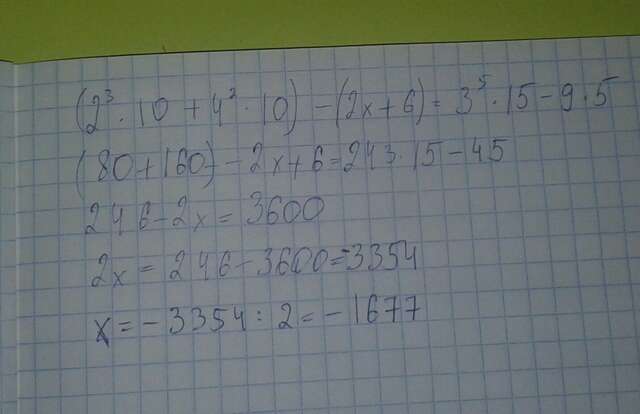 (2³ · 10 + 4² · 10) - (2x + 6) = 3⁵ · 15 - 9 · 5
(80 + 160) - 2x + 6 = 243 · 15 - 45
246 - 2x = 3600
2x = 246 - 3600 = -3354
x = - 3354 : 2 = - 1677